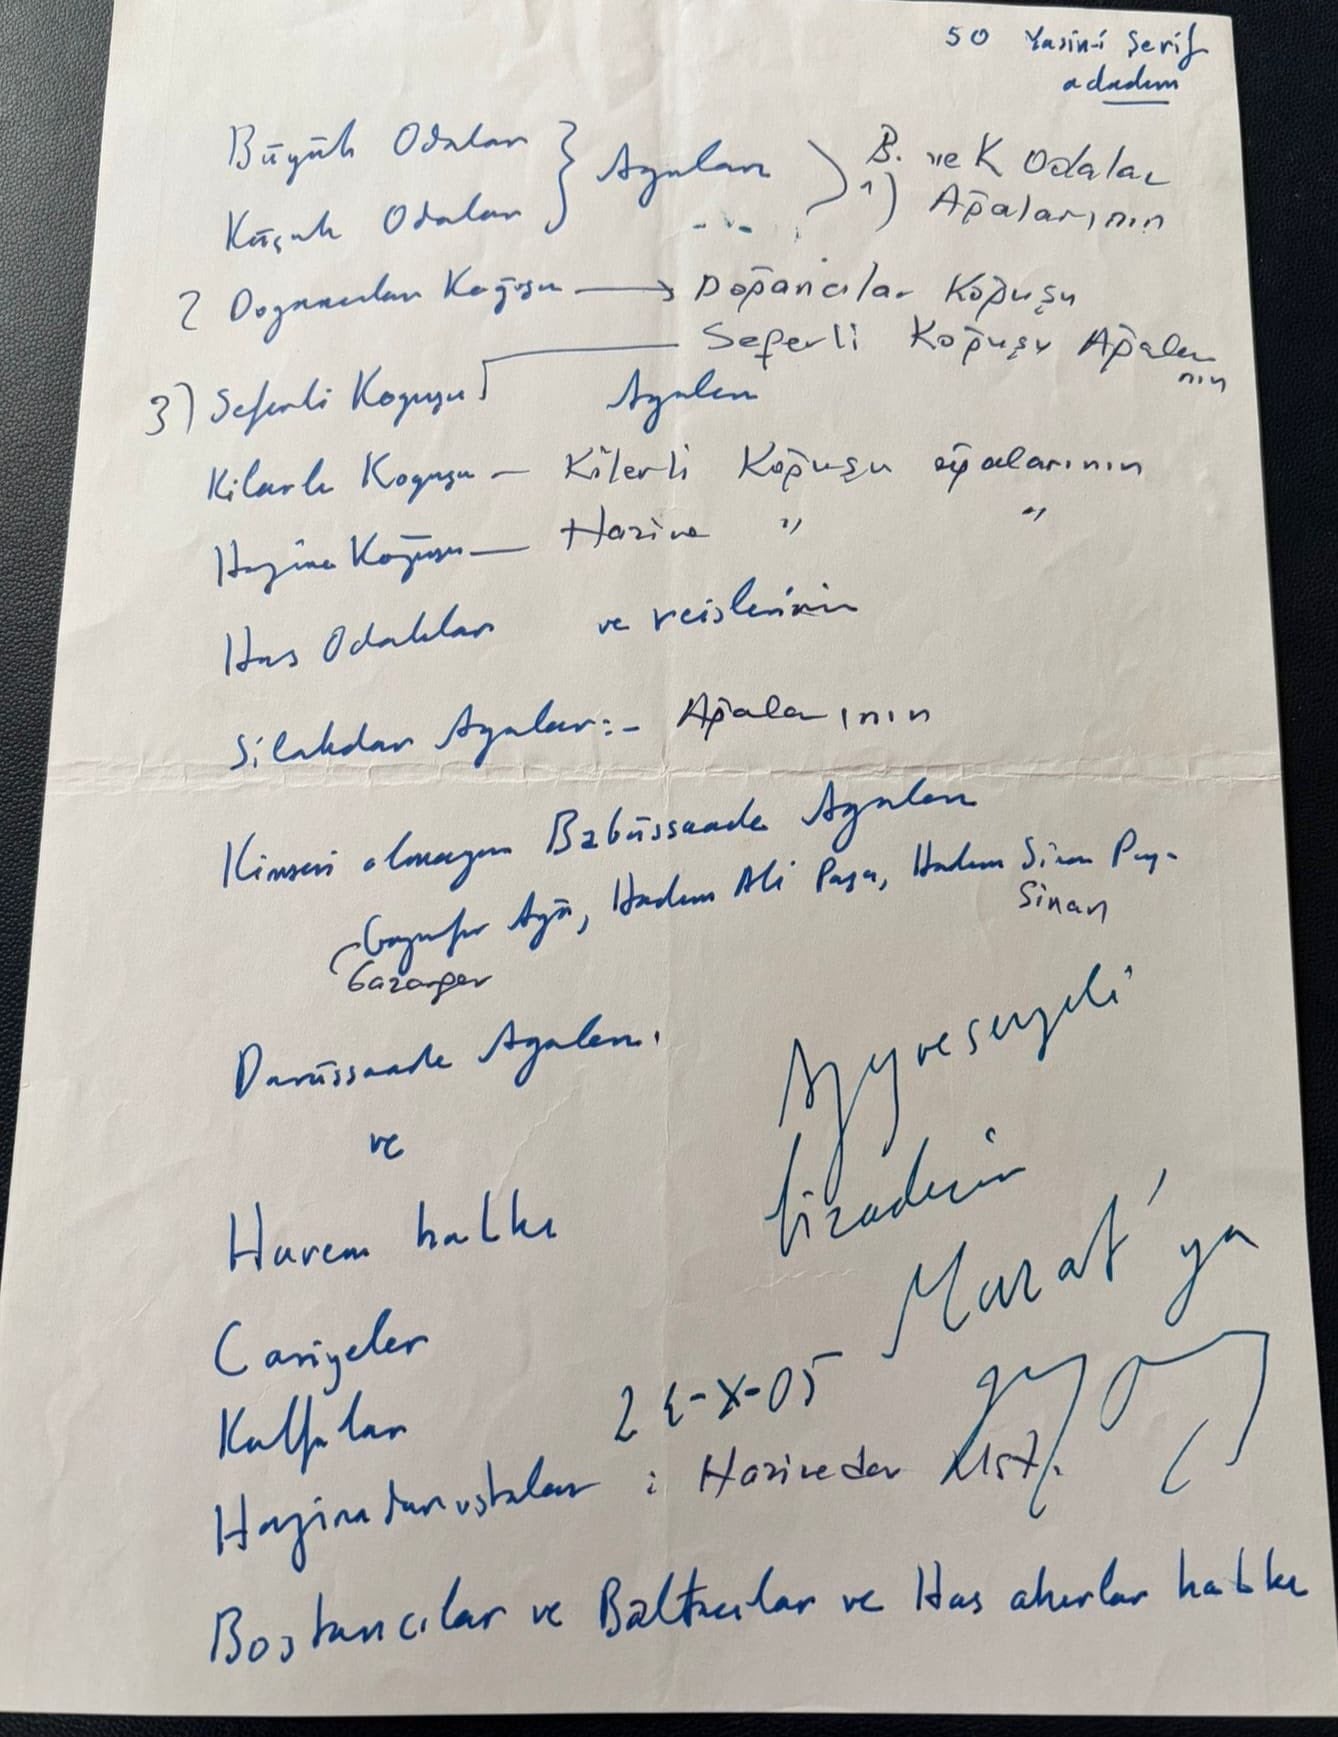 50 Yasin-i Şerif
adadım
Büyük Odalar } Ağaları ) B. ve K Odalar
Küçük Odalar 1) Ağalarının
2 Doğancılar Koğuşu → Doğancılar Koğuşu
Seferli Koğuşu Ağaları
nın
3) Seferli Koğuşu Ağaları
Kilarlı Koguşu — Kilerli Koğuşu ağalarının
Hazine Koğuşu — Hazine " "
Has Odalılar ve reislerinin
Silahdar Ağalar:- Ağalarının
Kimsesi olmayan Babüssaade Ağaları
Gazanfer Ağa, Hadım Ali Paşa, Hadım Sinan Paşa
Sinan
Gazanfer
Darüssaade Ağaları.
ve
Harem halkı
Cariyeler
Kalfalar
Hazinedar ustalar : Hazinedar Ust.
Bostancılar ve Baltacılar ve Has ahırlar halkı
biraderim
Murat'ya
-X-05